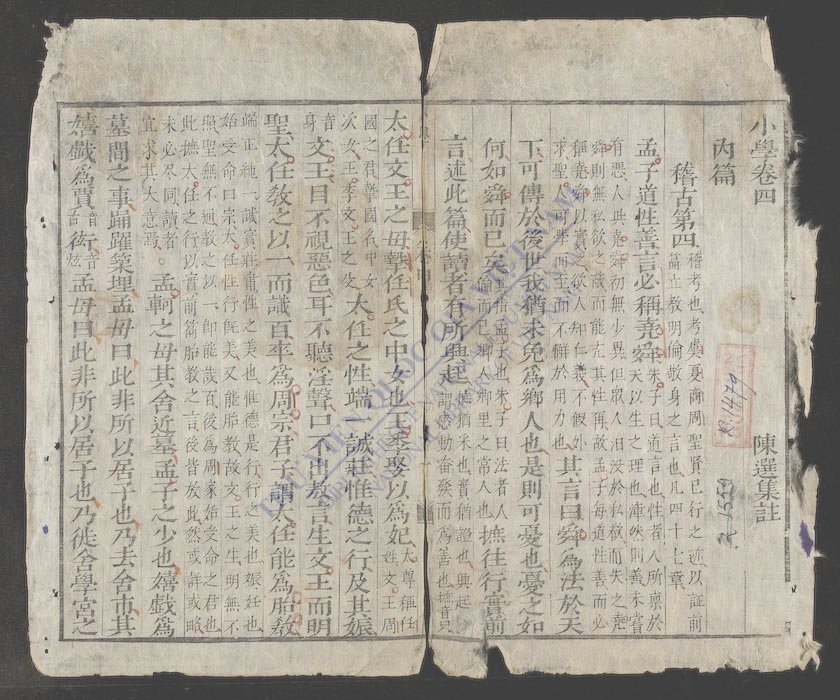 小學卷四 陳選集註
內篇
稽古第四 稽考也考虞夏商周聖賢已行之迹以証前
篇立教明倫敬身之言也凡四十七章
孟子道性善言必稱堯舜 朱子曰道言也性者人所禀於
天以生之理也渾然至善未嘗
有惡人與堯舜初無少異但眾人汩没於私欲而失之堯
舜則無私欲之蔽而能充其性耳故孟子每道性善而必
稱堯舜以實之欲人知仁義不假外
求聖人可學而至而不懈於用力也 其言曰舜為法於天
下可傳於後世我猶未免為鄉人也是則可憂也憂之如
何如舜而已矣 其指孟子也朱子曰法者人
倫而已鄉人鄉里之常人也 摭往行實前
言述此篇使讀者有所興起 摭猶采也實猶證也興起
謂感動奮發而為善也摭音只
卷四
太任文王之母摯任氏之中女也王季娶以為妃 太尊稱任
姓文王周
國之君摯國名中女
次女王季文王之父 太任之性端一誠莊惟德之行及其娠
音
身 文王目不視惡色耳不聽淫聲口不出敖言生文王而明
聖太任教之以一而識百卒為周宗君子謂太任能為胎教
端正純一誠實莊肅性之美也惟德是行行之美也娠妊也
始受命曰宗太任性行既美又能胎教故文王之生明無不
照聖無不通教之以一即能識百後為周家始受命之君也
此摭太任之行以實前篇胎教之言後皆放此然或詳或略
未必盡同讀者
宜求其大意焉 孟軻之母其舍近墓孟子之少也嬉戲為
墓間之事踊躍築埋孟母曰此非所以居子也乃去舍市其
嬉戲為賈音古衒音炫孟母曰此非所以居子也乃徙舍學宮之
R.1479
R 1559
THƯ VIỆN QUỐC GIA VIỆT NAM